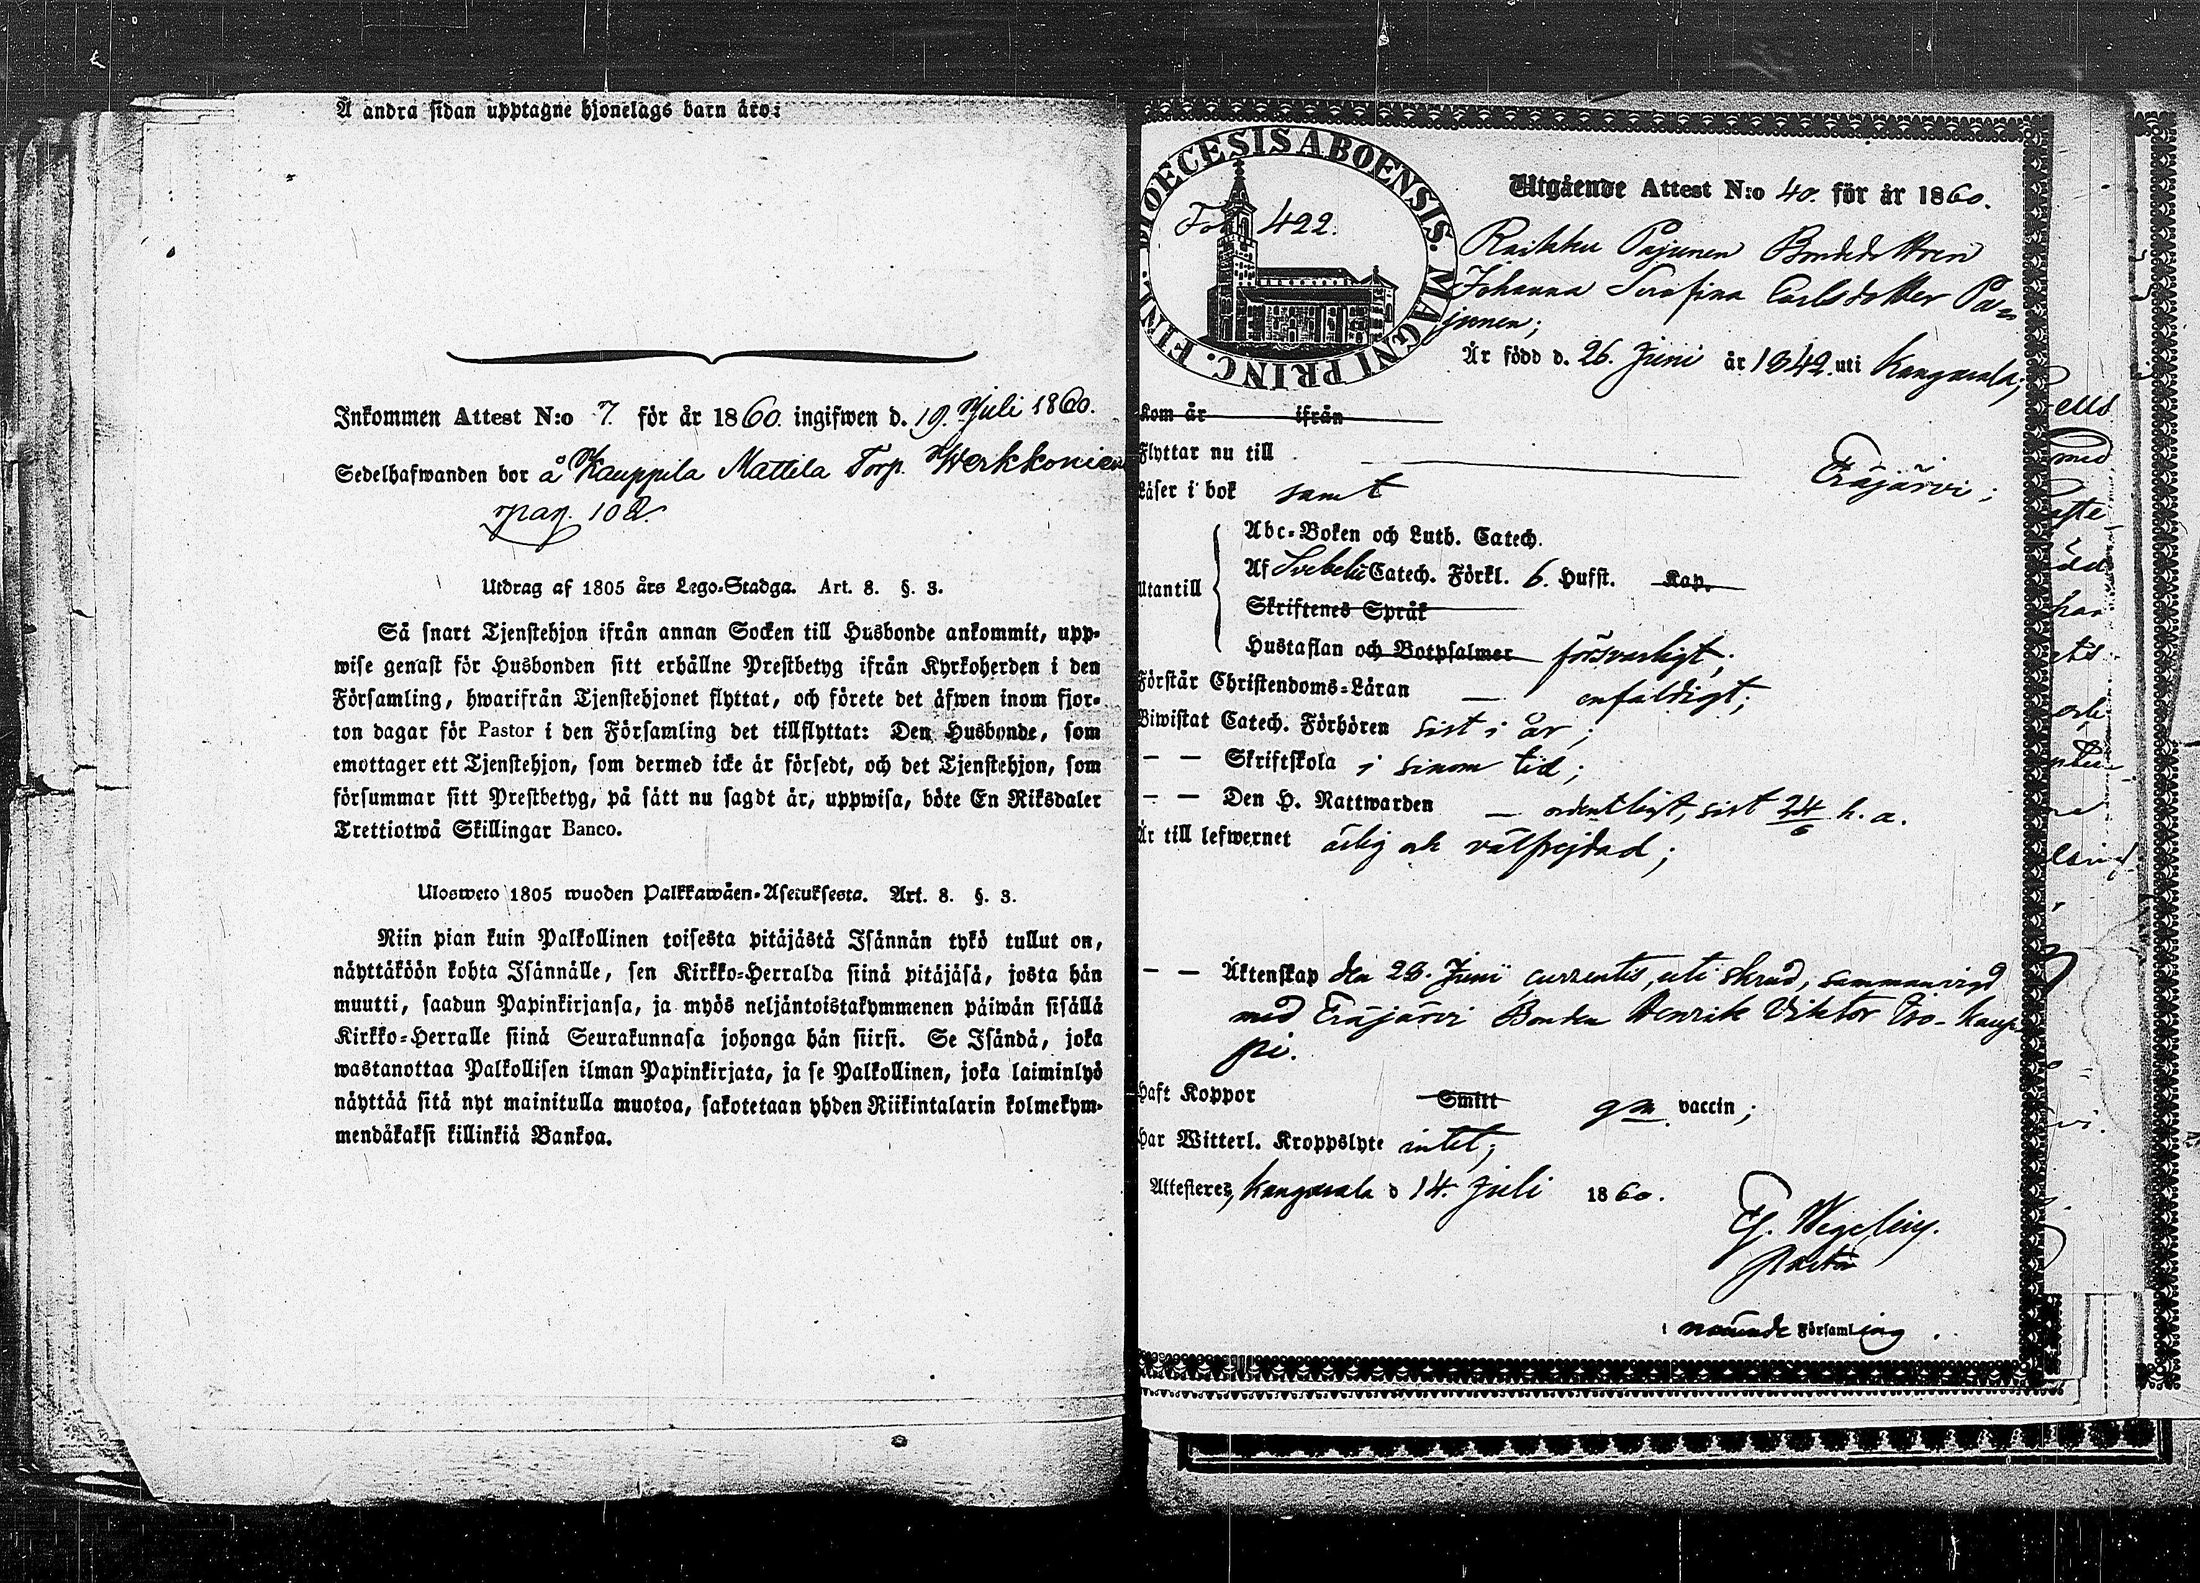 Å andra sidan upptagne hjonelags barn äro:
Inkommen Attest N:o 7. för år 1860. ingifwen d. 19. Juli 1860.
Sedelhafwanden bor å Kauppila Mattila Torp. Werkkonien
pag. 102.
Utdrag af 1805 års Lego-Stadga. Art. 8. §. 3.
Så snart Tjenstehjon ifrån annan Socken till Husbonde ankommit, upp-
wise genast för Husbonden sitt erhållne Prestbetyg ifrån Kyrkoherden i den
Församling, hwarifrån Tjenstehjonet flyttat, och förete det äfwen inom fjor-
ton dagar för Pastor i den Församling det tillflyttat: Den Husbonde, som
emottager ett Tjenstehjon, som dermed icke är försedt, och det Tjenstehjon, som
försummar sitt Prestbetyg, på sätt nu sagdt är, uppwisa, böte En Riksdaler
Trettiotwå Skillingar Banco.
Ulosweto 1805 wuoden Palkkawäen-Asetuksesta. Art. 8. §. 3.
Niin pian kuin Palkollinen toisesta pitäjästä Isännän tykö tullut on,
näyttäköön kohta Isännälle, sen Kirkko-Herralda siinä pitäjäsä, josta hän
muutti, saadun Papinkirjansa, ja myös neljäntoistakymmenen päiwän sisällä
Kirkko-Herralle siinä Seurakunnasa johonga hän siirsi. Se Isändä, joka
wastanottaa Palkollisen ilman Papinkirjata, ja se Palkollinen, joka laiminlyö
näyttää sitä nyt mainitulla muotoa, sakotetaan yhden Riikintalarin kolmekym-
mendäkaksi killinkiä Bankoa.
DIOECESIS ABOENSIS. MAGNI PRINC. FINL.
Fol. 422.
Utgående Attest N:o 40. för år 1860.
Raikku Pajunen Bondedottren
Johanna Serafina Carlsdotter Pa=
junen;
Är född d. 26. Juni år 1842. uti Kangasala;
Kom år ifrån
Flyttar nu till Eräjärvi;
Läser i bok samt
Utantill
Abc-Boken och Luth. Catech.
Af Svebelii Catech. Förkl. 6. Hufst. Kap.
Skriftenes Språk
Hustaflan och Botpsalmer försvarligt;
Förstår Christendoms-Läran — enfaldigt;
Biwistat Catech. Förhören sist i år;
— — Skriftskola i sinom tid;
— — Den H. Nattwarden — ordentligt, sist 24/6 h. a.
Är till lefwernet ärlig och välfrejdad;
— — Äktenskap den 28. Junii currentis, uti skrud, sammanvigd
med Eräjärvi Bonden Henrik Viktor Eso-Kaup-
pi.
Haft Koppor Smitt gm vaccin;
Har Witterl. Kroppslyte intet;
Attesteres, Kangasala d 14. Juli 1860.
Wegelius.
Pastor
i nämnde Församling.